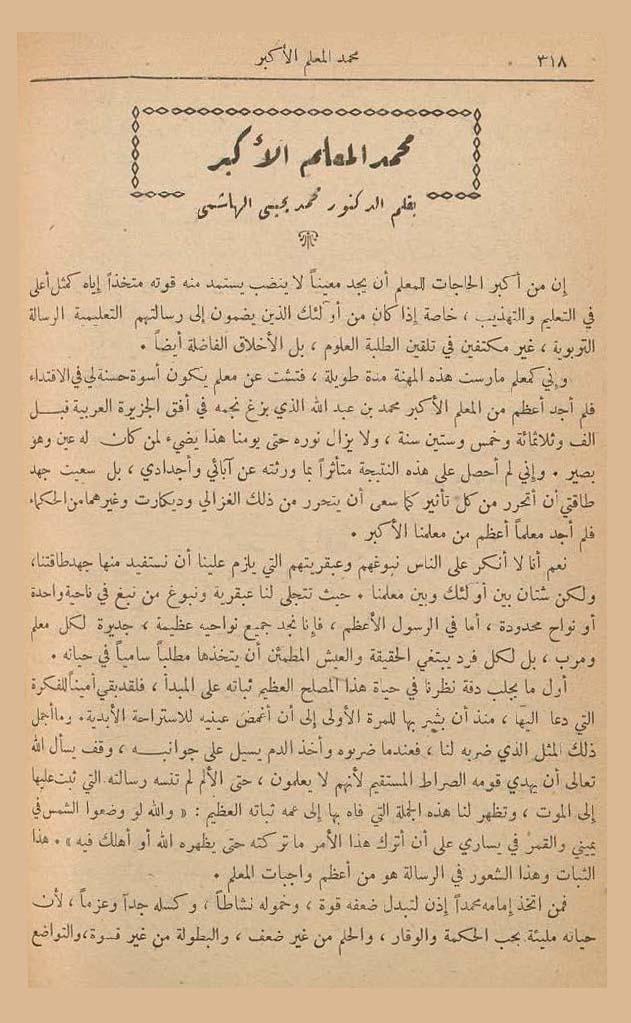 ٣١٨
محمد المعلم الأكبر
محمد المعلم الأكبر
بقلم الدكتور محمد يحيى الهاشمى
إن من أكبر الحاجات للمعلم أن يجد معيناً لا ينضب يستمد منه قوته متخذاً إياه كمثل أعلى
في التعليم والتهذيب ، خاصة إذا كان من أولئك الذين يضمون إلى رسالتهم التعليمية الرسالة
التربوية ، غير مكتفين في تلقين الطلبة العلوم ، بل الأخلاق الفاضلة أيضاً .
وإني كمعلم مارست هذه المهنة مدة طويلة ، فتشت عن معلم يكون أسوة حسنة لي في الاقتداء
فلم أجد أعظم من المعلم الأكبر محمد بن عبد الله الذي بزغ نجمه في أفق الجزيرة العربية قبل
الف وثلاثمائة وخمس وستين سنة ، ولا يزال نوره حتى يومنا هذا يضيء لمن كان له عين وهو
بصير . وإني لم أحصل على هذه النتيجة متأثراً بما ورثته عن آبائي وأجدادي ، بل سعيت جهد
طاقتي أن أتحرر من كل تأثير كما سعى أن يتحرر من ذلك الغزالي وديكارت وغيرهما من الحكماء
فلم أجد معلماً أعظم من معلمنا الأكبر .
نعم أنا لا أنكر على الناس نبوغهم وعبقريتهم التي يلزم علينا أن نستفيد منها جهد طاقتنا،
ولكن شتان بين أولئك وبين معلمنا . حيث تتجلى لنا عبقرية ونبوغ من نبغ في ناحية واحدة
أو نواح محدودة ، أما في الرسول الأعظم ، فإنا نجد جميع نواحيه عظيمة ، جديرة لكل معلم
ومرب ، بل لكل فرد يبتغي الحقيقة والعيش المطمئن أن يتخذها مطلباً سامياً في حياته .
أول ما يجلب دقة نظرنا في حياة هذا المصلح العظيم ثباته على المبدأ ، فلقد بقي أميناً للفكرة
التي دعا اليها ، منذ أن بشر بها للمرة الأولى إلى أن أغمض عينيه للاستراحة الأبدية. وما أجمل
ذلك المثل الذي ضربه لنا ، فعندما ضربوه وأخذ الدم يسيل على جوانبه ، وقف يسأل الله
تعالى أن يهدي قومه الصراط المستقيم لأنهم لا يعلمون ، حتى الألم لم تنسه رسالته التي ثبت عليها
إلى الموت ، وتظهر لنا هذه الجملة التي فاه بها إلى عمه ثباته العظيم : « والله لو وضعوا الشمس في
يميني والقمر في يساري على أن أترك هذا الأمر ما تركته حتى يظهره الله أو أهلك فيه » . هذا
الثبات وهذا الشعور في الرسالة هو من أعظم واجبات المعلم .
فمن اتخذ إمامه محمداً إذن لتبدل ضعفه قوة ، وخموله نشاطاً ، وكسله جداً وعزماً ، لأن
حياته مليئة بحب الحكمة والوقار ، والحلم من غير ضعف ، والبطولة من غير قسوة، والتواضع